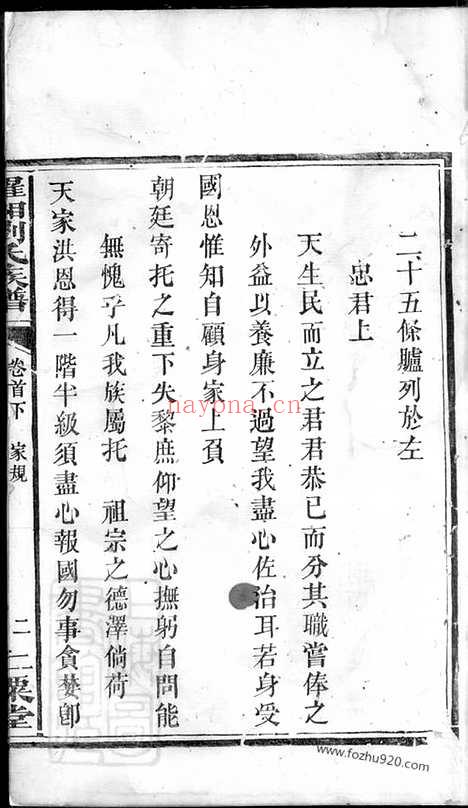 二十五條臚列於左
忠君上
天生民而立之君君恭已而分其職嘗俸之
外益以養廉不過望我盡心佐治耳若身受
國恩惟知自顧身家上負
朝廷寄托之重下失黎庶仰望之心撫躬自問能
無愧乎凡我族屬托 祖宗之德澤倘荷
天家洪恩得一階半級須盡心報國勿事貪婪卽
劉氏族譜
卷首下 家規
二
栗堂
nayona.cn
www.fozhu920.com